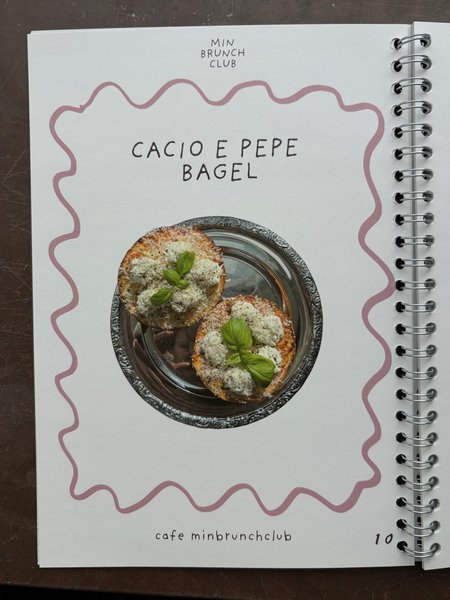 MIN
BRUNCH
CLUB
CACIO E PEPE
BAGEL
cafe minbrunchclub
10